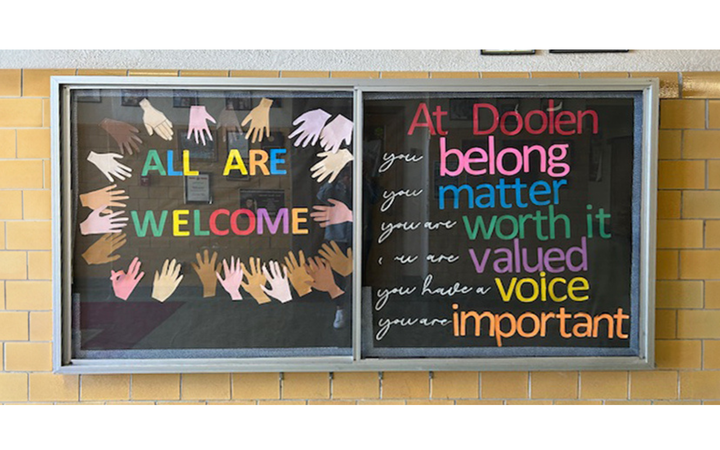 ALL ARE
WELCOME
At Dooien
you belong
you matter
you are worth it
are valued
you have a voice
you are important